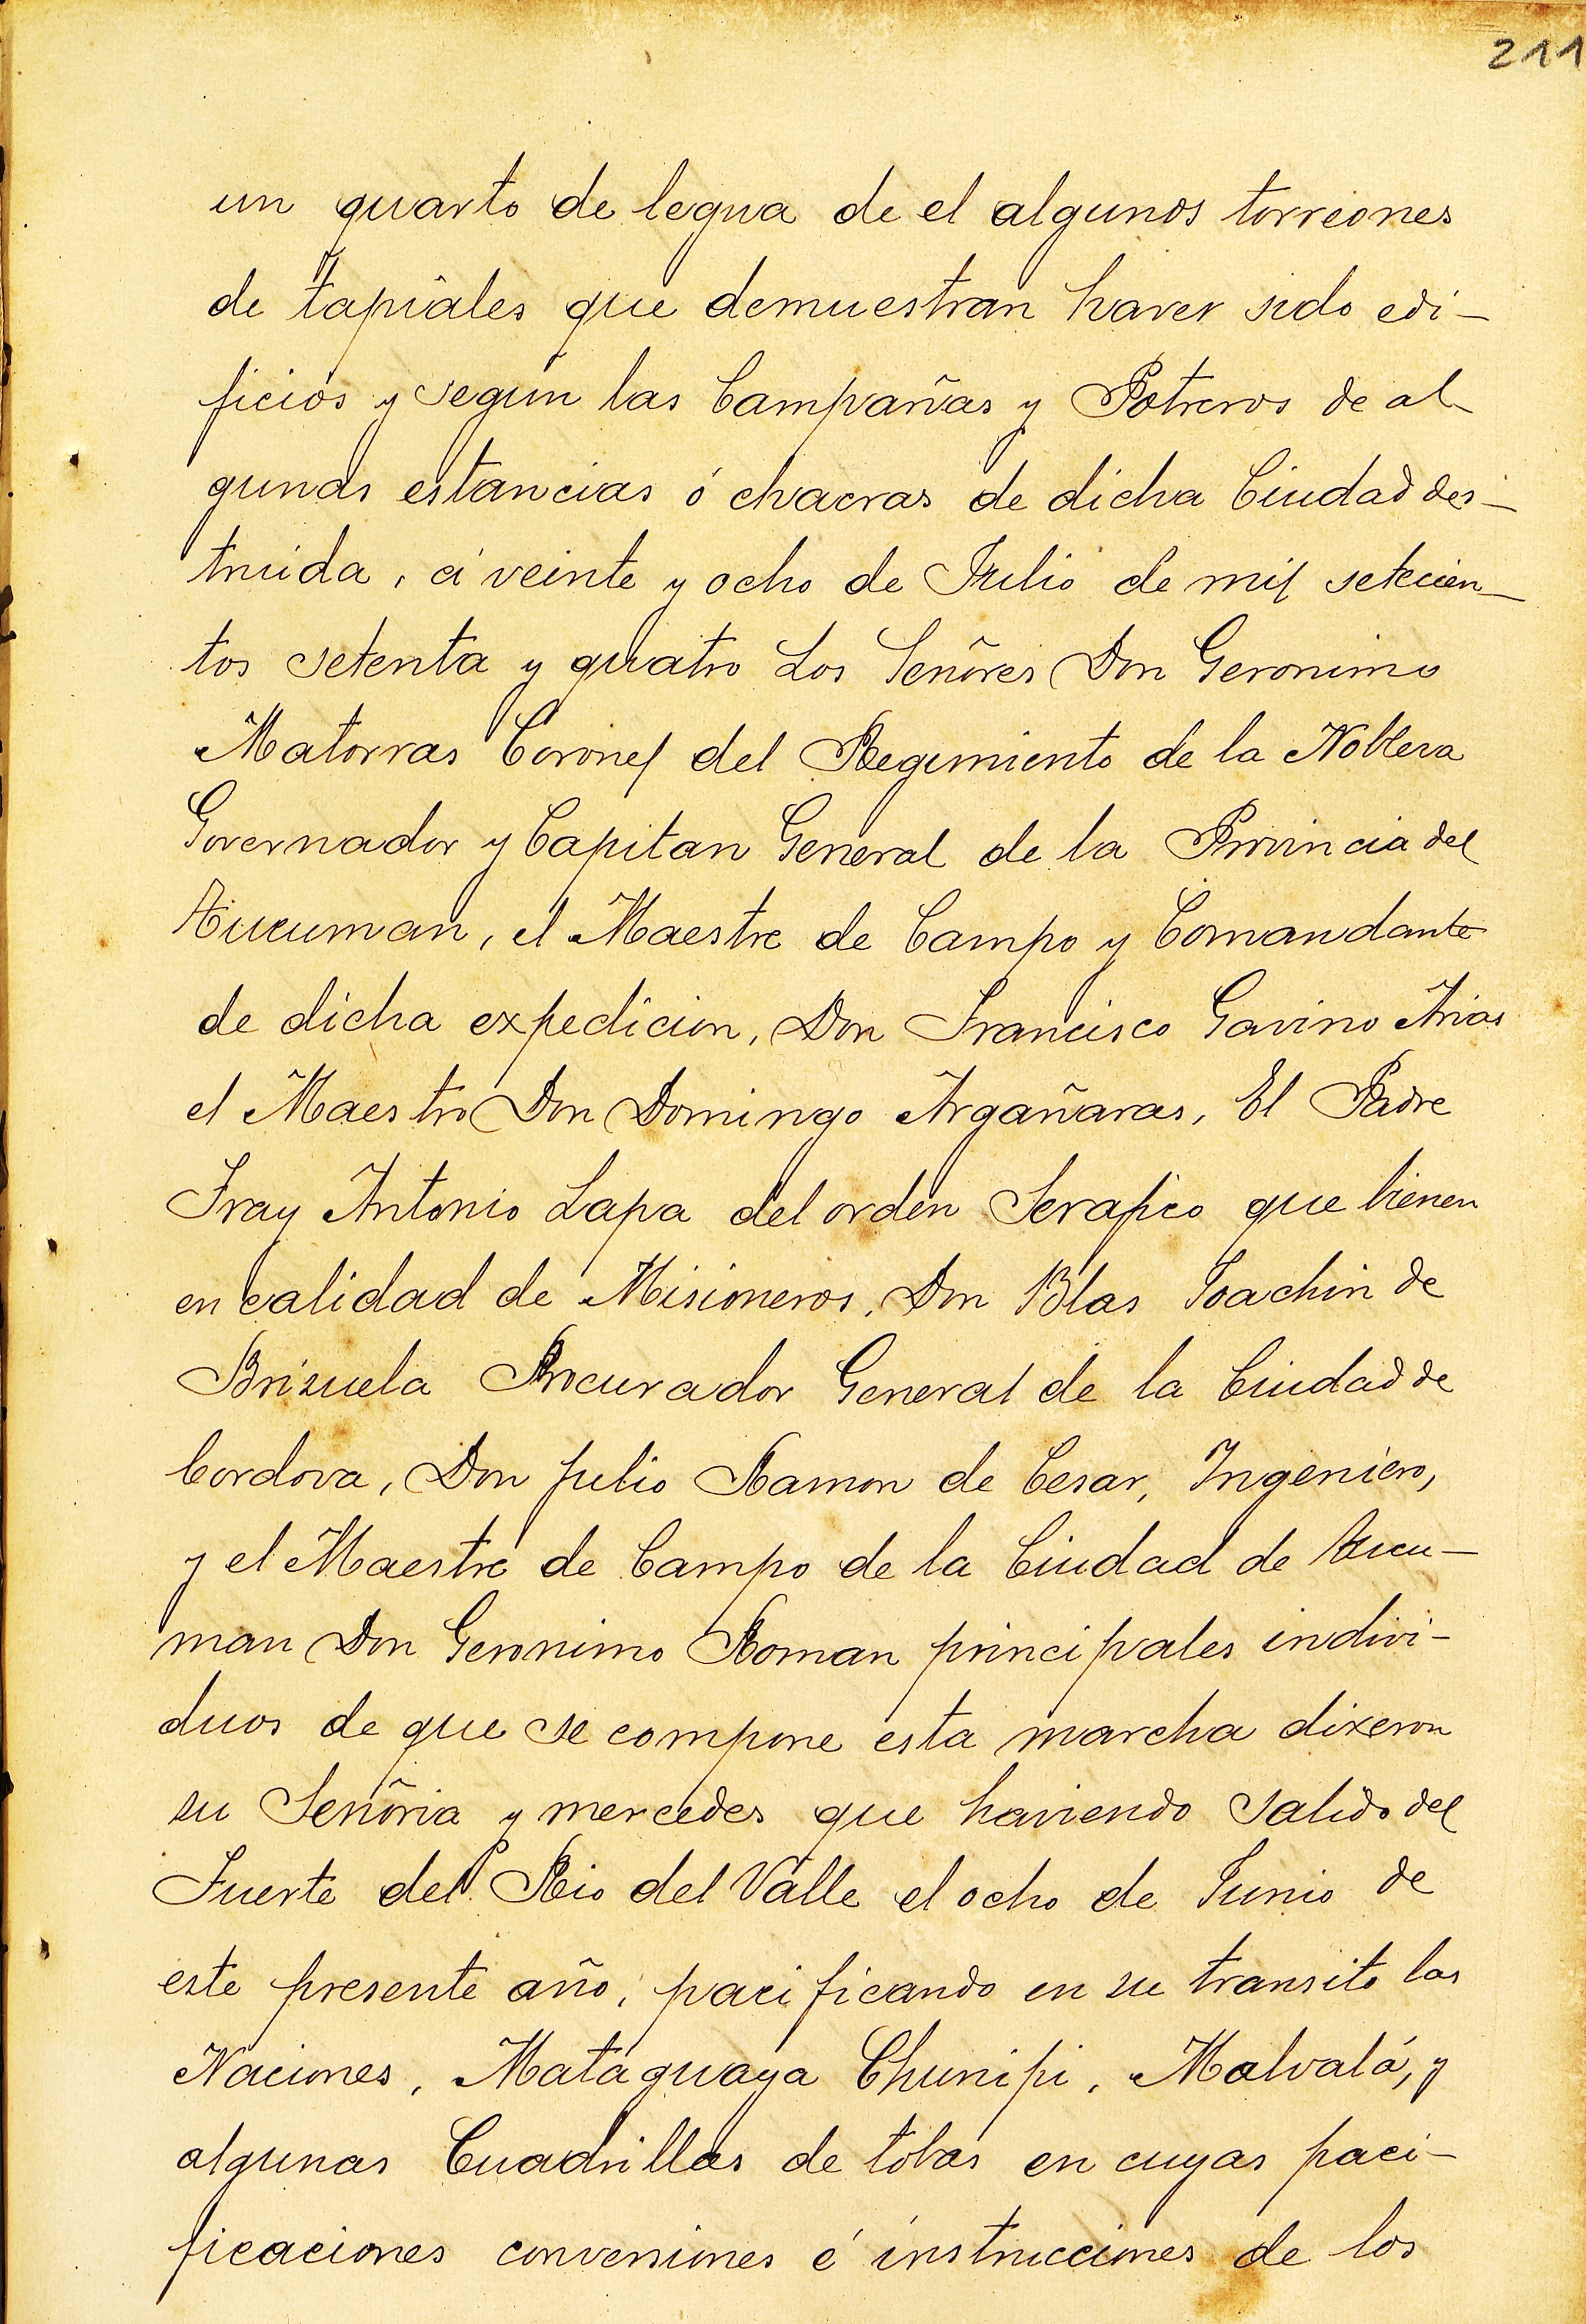 211
un quarto de legua de el algunos torreones
de tapiales que demuestran haver sido edi-
ficios y segun las Campañas y Potreros de al-
gunas estancias ó chacras de dicha Ciudad des-
truida, á veinte y ocho de Julio de mil setecien-
tos setenta y quatro Los Señores Don Geronimo
Matorras Coronel del Regimiento de la Nobleza
Governador y Capitan General de la Provincia del
Tucuman, el Maestre de Campo y Comandante
de dicha expedicion, Don Francisco Gavino Arias
el Maestro Don Domingo Argañaras, El Padre
Fray Antonio Lapa del orden Serafico que bienen
en calidad de Misioneros, Don Blas Joachin de
Brizuela Procurador General de la Ciudad de
Cordova, Don Julio Ramon de Cesar, Ingeniero,
y el Maestre de Campo de la Ciudad de Tucu-
man Don Geronimo Roman principales indivi-
duos de que se compone esta marcha dixeron
su Señoria y mercedes que haviendo salido del
Fuerte del Rio del Valle el ocho de Junio de
este presente año, pacificando en su transito las
Naciones, Mataguaya Chunipi, Malvalá, y
algunas Cuadrillas de tobas en cuyas paci-
ficaciones conversiones é instrucciones de los